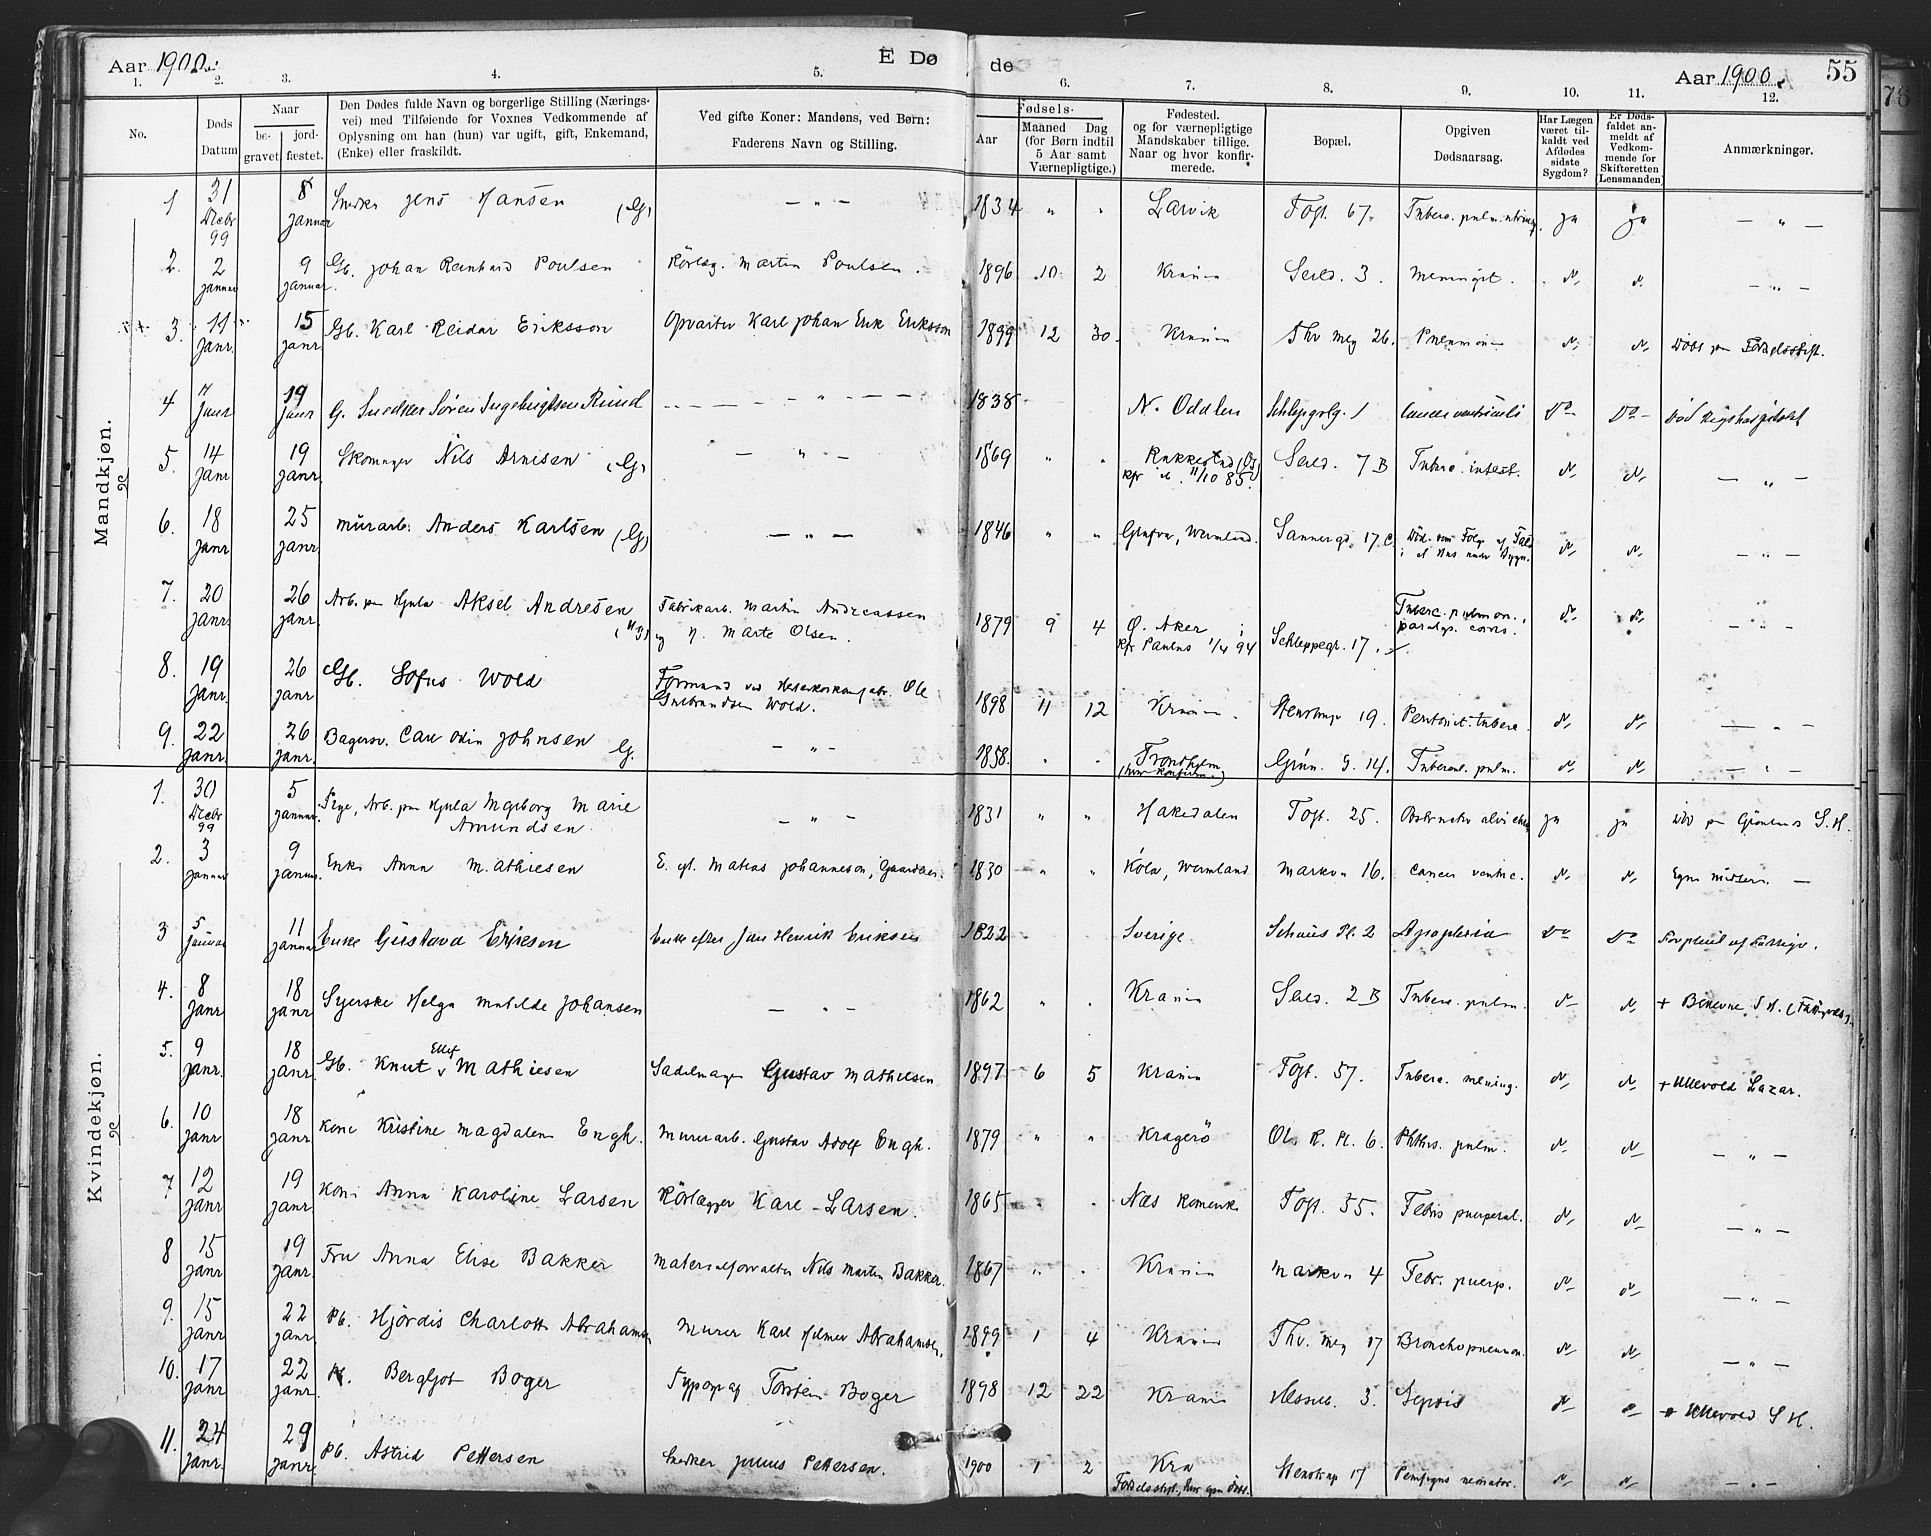 Aar 1900. E Dø de Aar 1900. 55
1. 2. 3. 4. 5. 6. 7. 8. 9. 10. 11. 12.
No.
Døds Datum
Naar
be- gravet.
jord- fæstet.
Den Dødes fulde Navn og borgerlige Stilling (Nærings-
vei) med Tilføiende for Voxnes Vedkommende af
Oplysning om han (hun) var ugift, gift, Enkemand,
(Enke) eller fraskildt.
Ved gifte Koner: Mandens, ved Børn:
Faderens Navn og Stilling.
Fødsels-
Aar
Maaned Dag
(for Børn indtil
5 Aar samt
Værnepligtige.)
Fødested.
og for værnepligtige
Mandskaber tillige.
Naar og hvor konfir-
merede.
Bopæl.
Opgiven
Dødsaarsag.
Har Lægen
været til-
kaldt ved
Afdødes
sidste
Sygdom?
Er Døds-
faldet an-
meldt af
Vedkom-
mende for
Skifteretten
Lensmanden
Anmærkninger.
Mandkjøn.
1 31 Decbr 99 8 Januar Snedker Jens Hansen (G) — " — 1834 " " Larvik Fogt. 67. Tuberc. pulm. ja ja — " —
2. 2 Januar 9 Januar Gb. Johan Reinhard Poulsen Rörlæg. Martin Poulsen. 1896 10 2 Krania Seild. 3. Meningit. — " —
3. 11 Janr. 15 Janr Gb. Karl Reidar Eriksson Opvarter Karl Johan Erik Eriksson 1899 12 30. Krania Thv Mey 26. Pneumoni Död paa Födselsstift.
4 Janr 19 Janr G. Snedker Søren Ingebrigtsen Rund — " — 1838 N. Odalen Schleppegrlg. 1 Cancer ventriculi Do Do Död Rigshospitalet
5. 14 Janr 19 Janr. Skomager Nils Arnesen (G) — " — 1869 " " Rakkestad kfr 11/10 85. Seild. 7 B Tuberc. intest. — " —
6. 18 Janr 25 Janr Murarb. Anders Karlsen (G) — " — 1846 " " Glafva, Wermland. Sannergd. 17 C. Död som Fölge af Fald — " —
7. 20 Janr. 26 Janr. Arb. paa Hjula Aksel Andresen Fabrikarb. Martin Andreassen
og H. Marte Olsen. 1879 9 4 Ø. Aker kfr Paulus 1/4 94 Schleppegr. 17. Tuberc. pulmon. — " —
8. 19 Janr. 26 Janr Gb. Sofus Wold Formand ved Ole
Gulbrandsen Wold. 1898 11 12 Krania. Stenstrup 19. Peritonit. tuberc. — " —
9. 22 Janr. 26 Janr. Bagersv. Carl Odin Johnsen G. — " — 1858. Trondhjem Grün. G. 14. Tubercul. pulm. — " —
Kvindekjøn.
1. 30 Decbr 99 5 Januar. Pige, Arb. paa Hjula Marborg Marie
Amundsen — " — 1831 " " Hakedalen Fogt. 25. ja ja Död paa S. H.
2. 3 Januar 9 Januar. Enke Anna Mathiesen E. ef. Matias Johanneson, 1830 " " Köla, Wermland Markvn 16. Cancer ventric. Egne midler. —
3 5 Januar 11 Januar Enke Gustava Erikson Enke efter Jan Henrik Eriksen 1822 Sverige. Schous Pl. 2 Apoplexia Do Do Forpleiet af Fattigv.
4. 8 Janr 18 Janr Syerske Helga Matilde Johansen — " — 1862 " " Krania Seild. 2 B Tuberc. pulm. + S. H.
5. 9 Janr. 18 Janr. Gb. Knut Ellef Mathiesen Sadelmager Gustav Mathiesen 1897 6 5 Krania Fogt. 57. Tuberc. mening. + Ullevold Lazar.
6. 10 Janr 18 Janr Kone Kristine Magdalene Engh. Murarb. Gustav Adolf Engh. 1879 " " Kragerö Ol. R. Pl. 6. Phthis. pulm. — " —
7 12 Janr 19 Janr Kone Anna Karoline Larsen Rörlægger Karl Larsen. 1865 Næs Romerike Fogt. 55. Febris puerperal. — " —
8 15 Janr 19 Janr. Fru Anna Elise Bakker Materialforvalter Nils Martin Bakker. 1867 " Krania Markvn 4 Febr. puerp. — " —
9. 15 Janr 22 Janr Pb. Hjördis Charlotte Abrahamsen Murer Karl Hilmer Abrahamsen. 1899 1 4 Krania Thv. Mey 17 Bronchopneumon. — " —
10. 17 Janr 22 Janr. Pb. Bergljot Boger Typograf Torsten Boger 1898 12 22 Krania 3. Sepsis + Ullevold S H.
11. 24 Janr. 29 Janr. Pb. Astrid Pettersen Snedker Julius Pettersen. 1900 1 2 Kra Födselsstift. Stenstrup 17 Pemfigus neonator. — " —
76